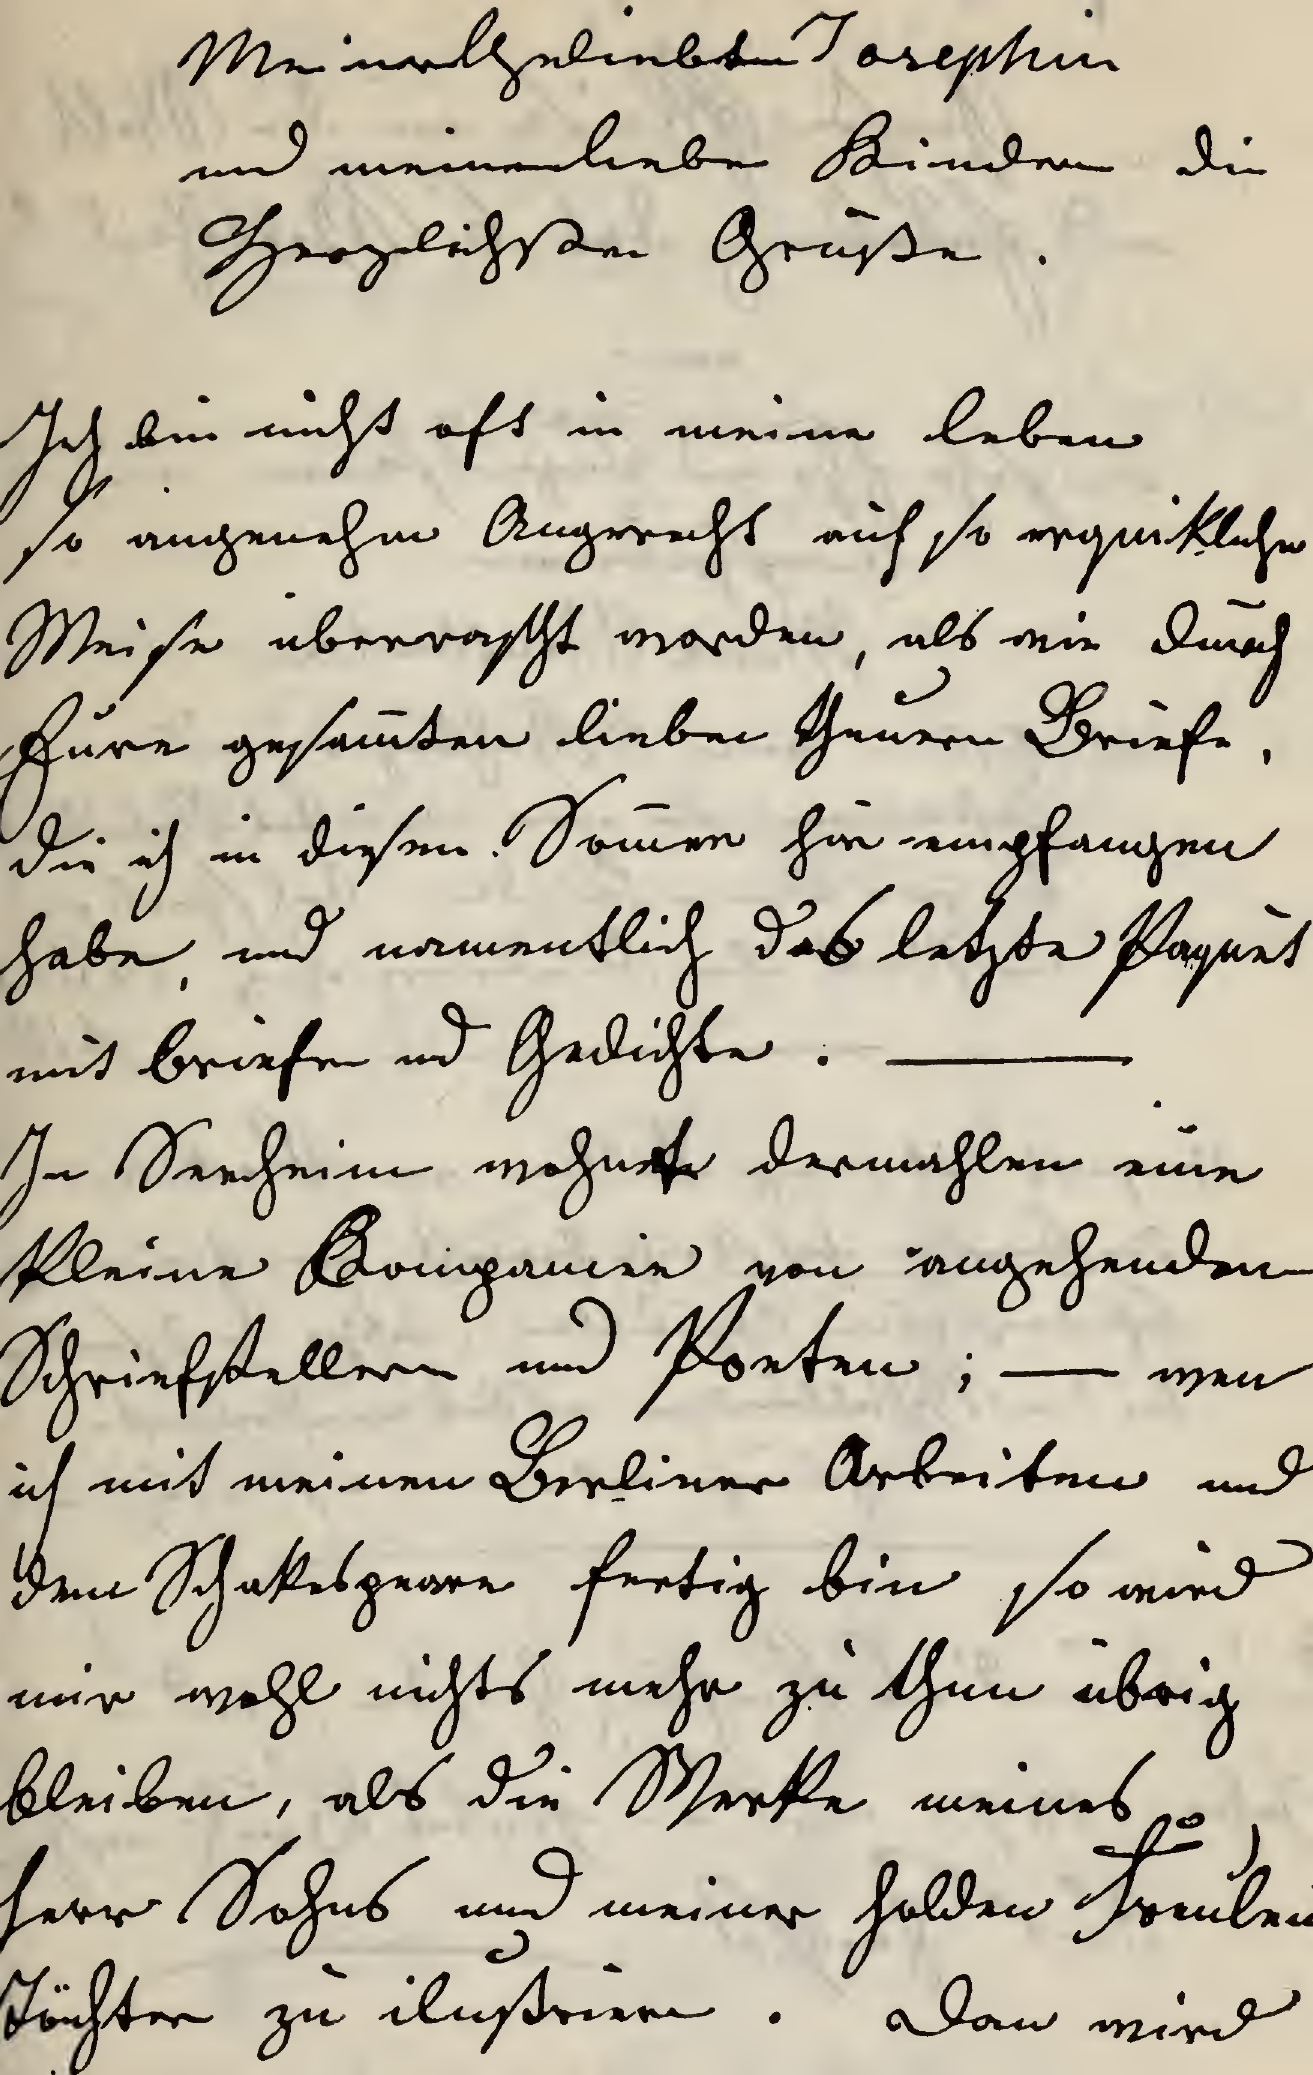 Meiner Geliebten Josephin
und meinen liebe Kinder die
Herzlichsten Grüße .
Ich bin nicht oft in meine leben
so angenehm Angerecht auf so erquikliche
Weise überrascht worden, als wie durch
Eure gesam̅ten lieben theuern Briefe,
die ich in diesem Som̅er hir empfangen
habe, und namentlich das letzte Paquet
mit briefe und Gedichte . —
In Seeheim wohnt dermahlen eine
kleine Kompanien von angehenden
Schriefstellern und Poeten ; — wen
ich mit meinen Berliner Arbeiten und
dem Schakespeare fertig bin so wird
mir wohl nichts mehr zu thun übrig
bleiben, als die Werke meines
herr Sohns und meiner holden Freulein
Töchter zu ilustriren . Dan wird